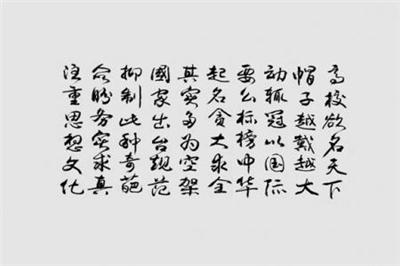 高校欲名天下
帽子越戴越大
动辄冠以国际
要么标榜中华
起名贪大求全
其实多为空架
国家出台规范
抑制此种奇葩
盼务实求真
注重思想文化